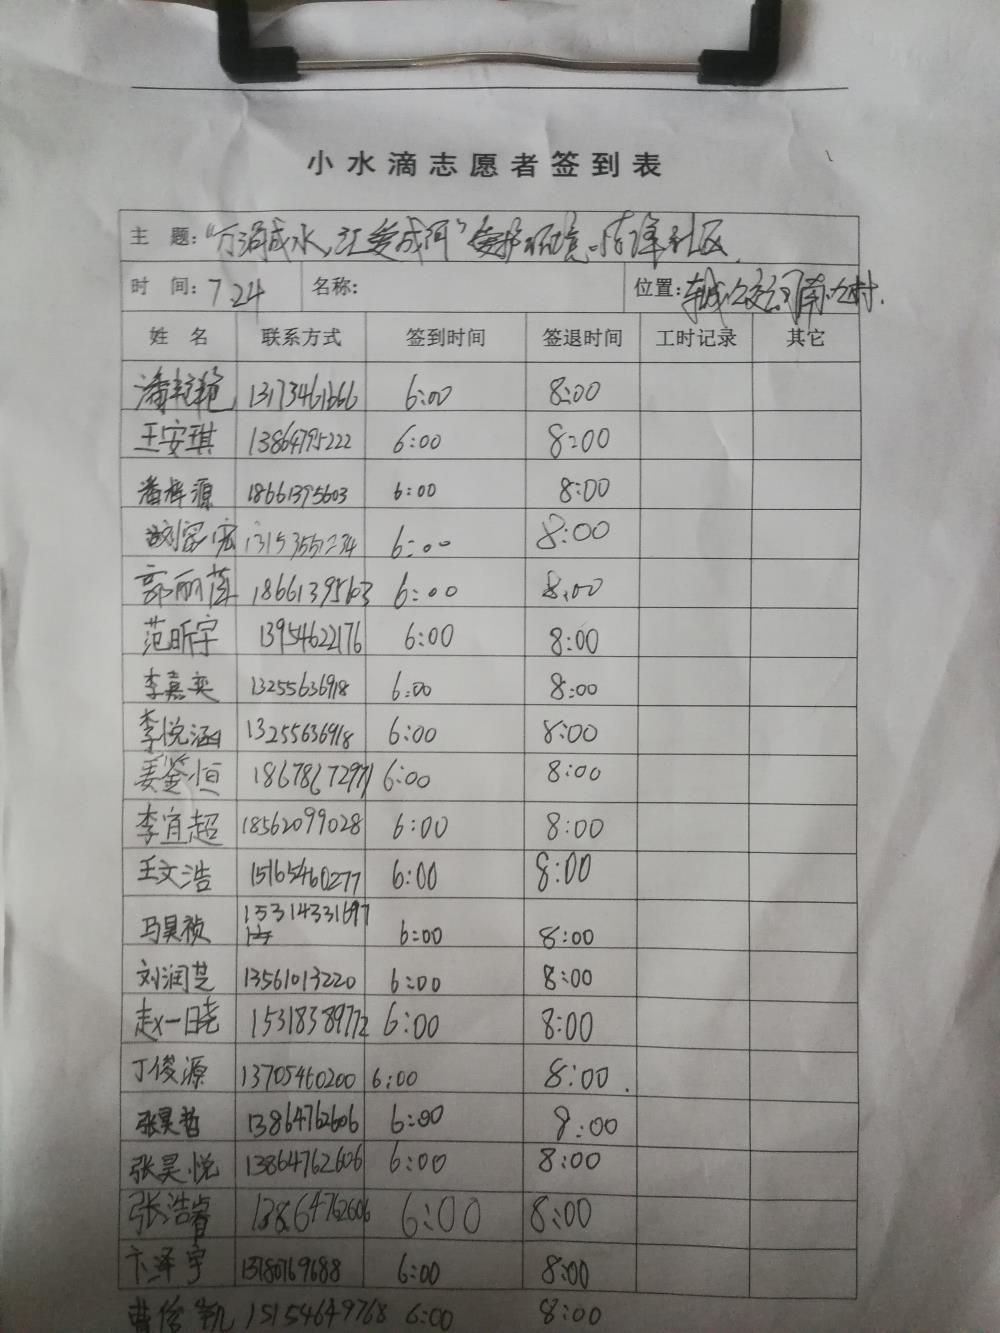 小水滴志愿者签到表
主 题: “万涓成水,汇爱成河”爱护环境 社区
时 间: 7.24 名称: 位置:
姓 名 联系方式 签到时间 签退时间 工时记录 其它
13173461666 6:00 8:00
王安琪 13864795222 6:00 8:00
潘梓源 18661395603 6:00 8:00
6:00 8:00
郭丽萍 18661395603 6:00 8:00
范昕宇 13954622176 6:00 8:00
李嘉奕 13255636918 6:00 8:00
李悦涵 13255636918 6:00 8:00
姜鉴恒 18678672971 6:00 8:00
李宜超 18562099028 6:00 8:00
王文浩 15165460277 6:00 8:00
马昊祯 15314331697 6:00 8:00
刘润芝 13561013220 6:00 8:00
赵一晓 15318389772 6:00 8:00
丁俊源 13705460200 6:00 8:00
张昊哲 13864762606 6:00 8:00
张昊悦 13864762606 6:00 8:00
张浩睿 13864762606 6:00 8:00
卞泽宇 13780769688 6:00 8:00
曹俊凯 15154649768 6:00 8:00